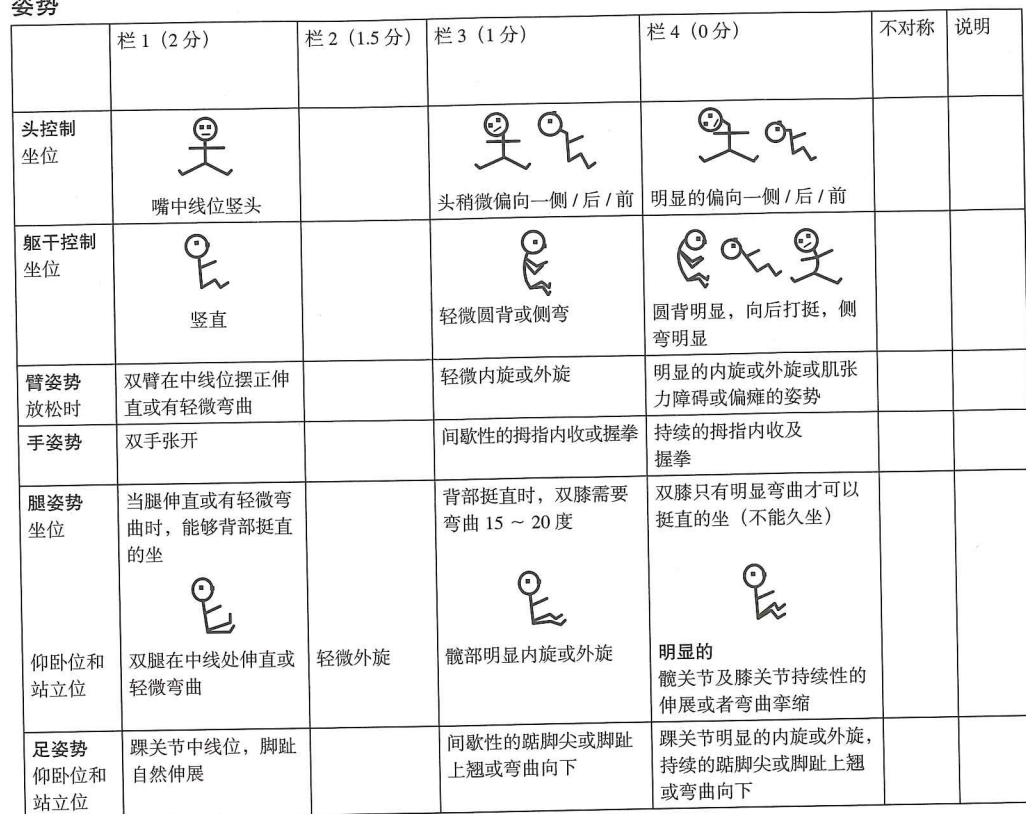 姿势
栏 1（2 分）
栏 2（1.5 分）
栏 3（1 分）
栏 4（0 分）
不对称
说明
头控制
坐位
嘴中线位竖头
头稍微偏向一侧 / 后 / 前
明显的偏向一侧 / 后 / 前
躯干控制
坐位
竖直
轻微圆背或侧弯
圆背明显，向后打挺，侧
弯明显
臂姿势
放松时
双臂在中线位摆正伸
直或有轻微弯曲
轻微内旋或外旋
明显的内旋或外旋或肌张
力障碍或偏瘫的姿势
手姿势
双手张开
间歇性的拇指内收或握拳
持续的拇指内收及
握拳
腿姿势
坐位
当腿伸直或有轻微弯
曲时，能够背部挺直
的坐
背部挺直时，双膝需要
弯曲 15 ～ 20 度
双膝只有明显弯曲才可以
挺直的坐（不能久坐）
仰卧位和
站立位
双腿在中线处伸直或
轻微弯曲
轻微外旋
髋部明显内旋或外旋
明显的
髋关节及膝关节持续性的
伸展或者弯曲挛缩
足姿势
仰卧位和
站立位
踝关节中线位，脚趾
自然伸展
间歇性的踮脚尖或脚趾
上翘或弯曲向下
踝关节明显的内旋或外旋，
持续的踮脚尖或脚趾上翘
或弯曲向下